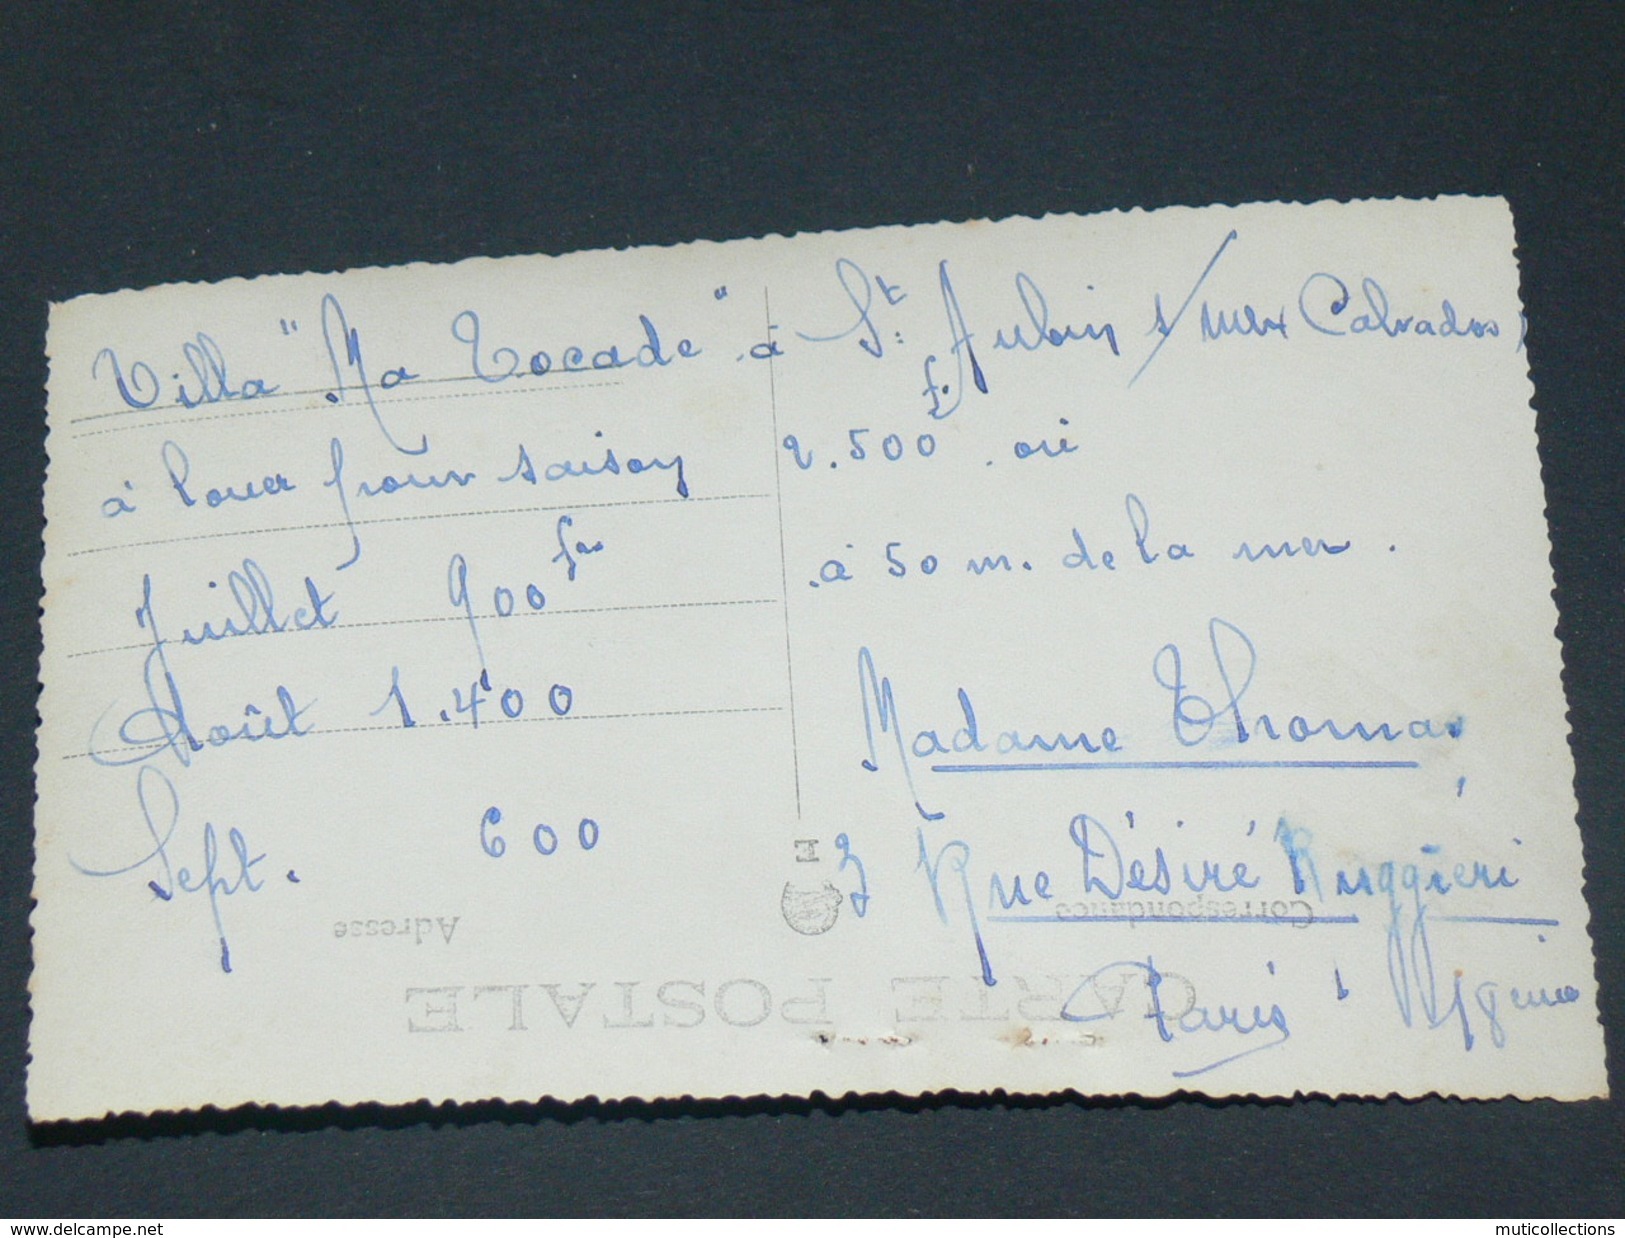 Villa "Ma Tocade" à St. Aubin s/ mer Calvados
à louer pour saison 2.500 f. ou
Juillet 900 frs
à 50 m. de la mer.
Août 1.400
Sept. 600
Madame Thomas
Rue Désiré Ruggieri
Paris 18eme
E
Correspondance
Adresse
CARTE POSTALE
www.delcampe.net
muticollections